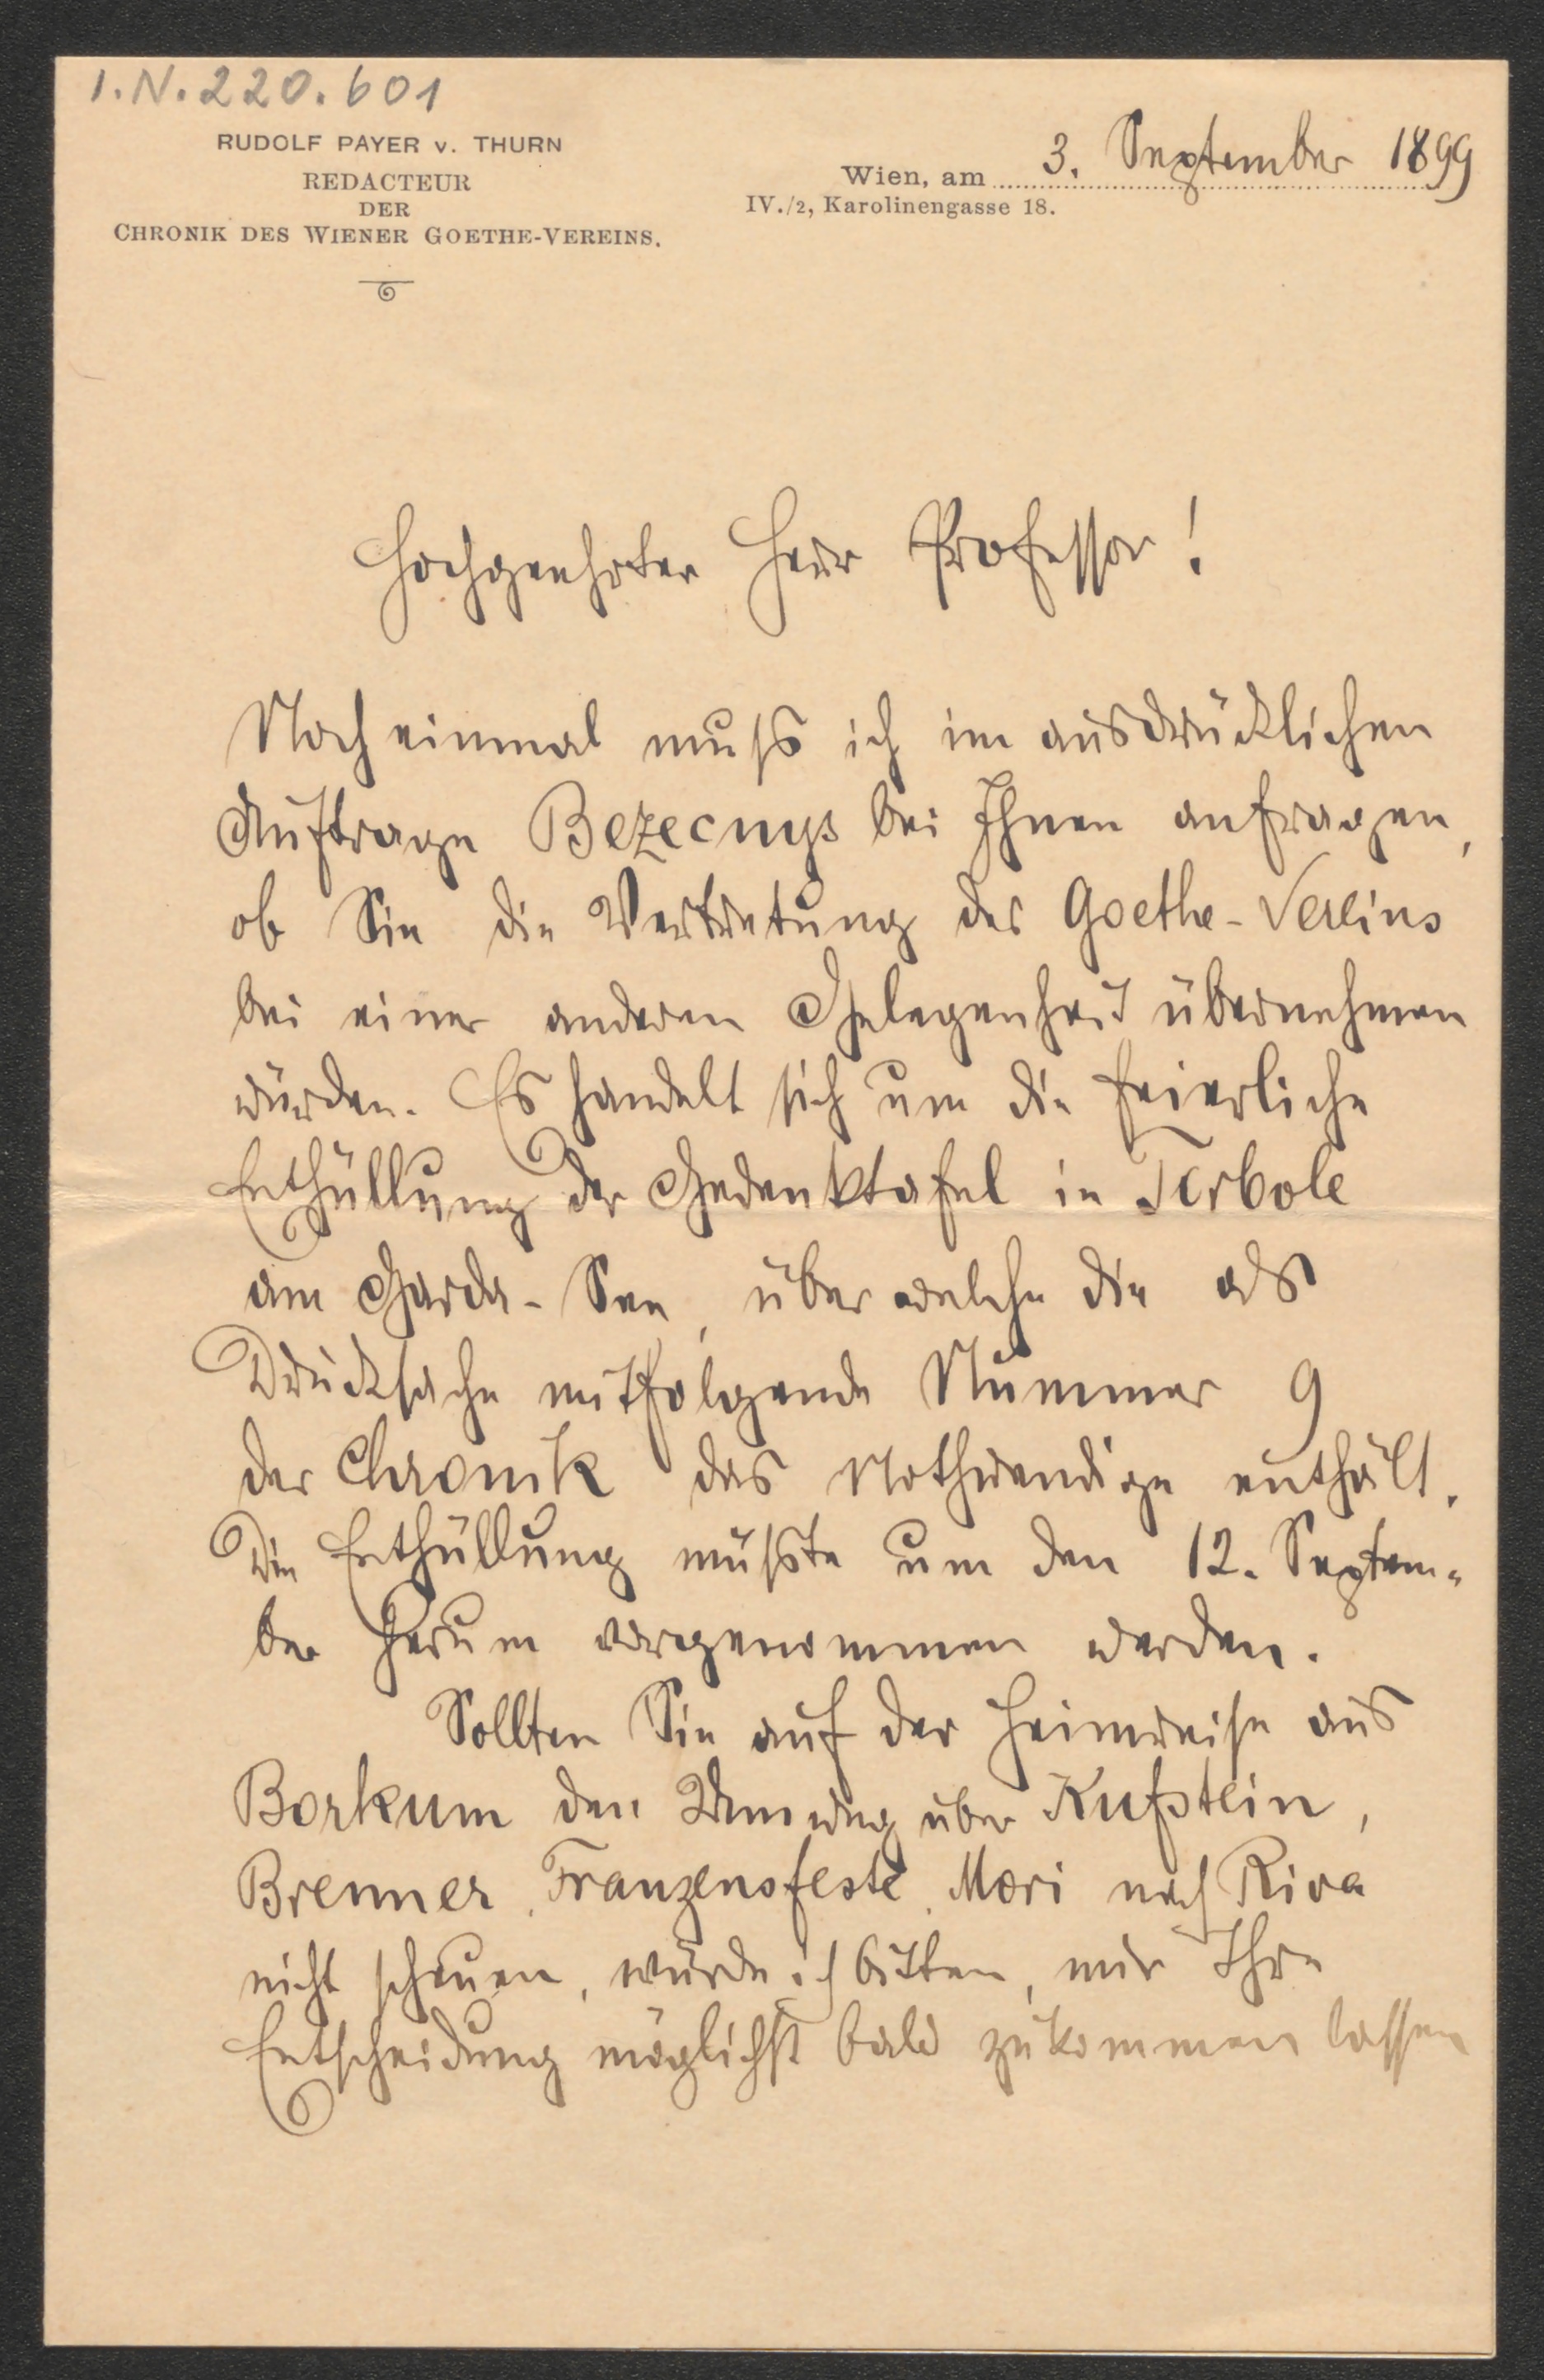 I.N.220.601
RUDOLF PAYER v. THURN
REDACTEUR
DER
CHRONIK DES WIENER GOETHE-VEREINS.
Wien, am 3. September 1899
IV./2, Karolinengasse 18.
Hochgeehrter Herr Professor!
Noch einmal muſs ich im ausdrücklichen
Auftrage Bezecnys bei Ihnen anfragen,
ob Sie die Vertretung des Goethe-Vereins
bei einer anderen Gelegenheit übernehmen
würden. Es handelt sich um die feierliche
Enthüllung der Gedenktafel in Torbole
am Garda-See, über welche die als
Drucksache mitfolgende Nummer 9
der Chronik das Nothwendige enthält.
Die Enthüllung müſste um den 12. Septem-
ber herum vorgenommen werden.
Sollten Sie auf der Heimreise aus
Borkum den Umweg über Kufstein,
Brenner, Franzensfeste, Mori nach Riva
nicht scheuen, würde ich bitten, mir Ihre
Entscheidung möglichst bald zukommen lassen